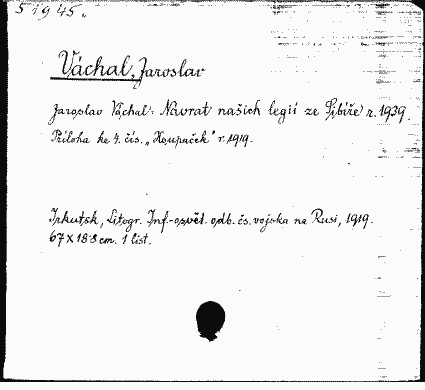 51945.
Váchal, Jaroslav
Jaroslav Váchal: Návrat našich legií ze Sibiře r. 1939.
Příloha ke 4. čís. „Houpaček" r. 1919.
Irkutsk, Litogr. Inf.-osvět. odb. čs. vojska na Rusi, 1919.
67 x 188 cm. 1 list.